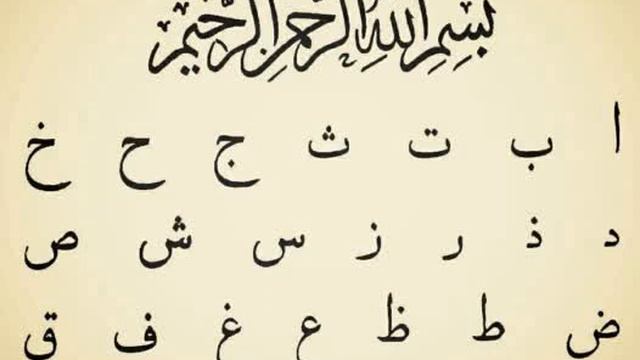 بِسْمِ اللهِ الرَّحْمٰنِ الرَّحِيْمِ
ا ب ت ث ج ح خ
د ذ ر ز س ش ص
ض ط ظ ع غ ف ق